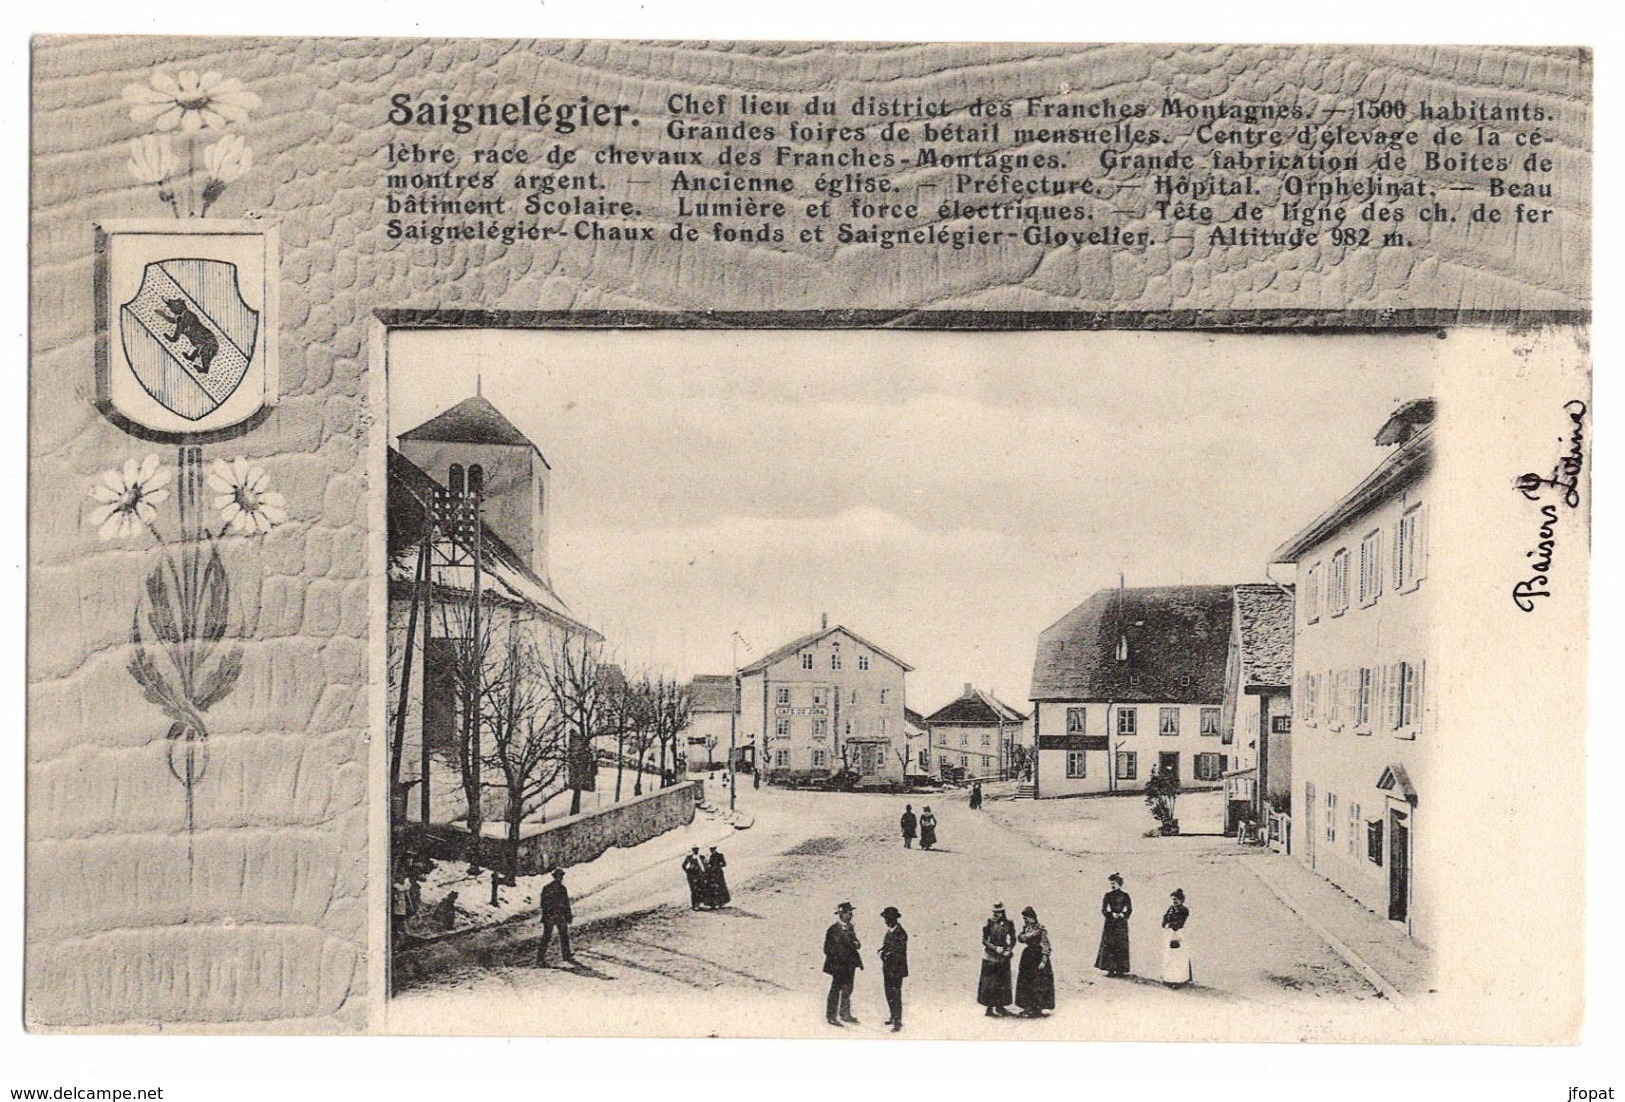 Saignelégier. Chef lieu du district des Franches Montagnes. — 1500 habitants.
Grandes foires de bétail mensuelles. Centre d'élevage de la cé-
lèbre race de chevaux des Franches-Montagnes. Grande fabrication de Boites de
montres argent. — Ancienne église. — Préfecture. — Hôpital. Orphelinat. — Beau
bâtiment Scolaire. Lumière et force électriques. — Tête de ligne des ch. de fer
Saignelégier-Chaux de fonds et Saignelégier-Glovelier. — Altitude 982 m.
CAFÉ DU JURA
RE
Baisers
www.delcampe.net
jfopat